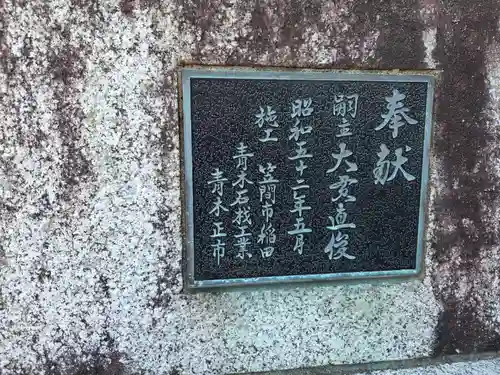 奉献
嗣立 大貫直俊
昭和五十二年五月
施工 笠間市稲田
青木石材工業
青木正市